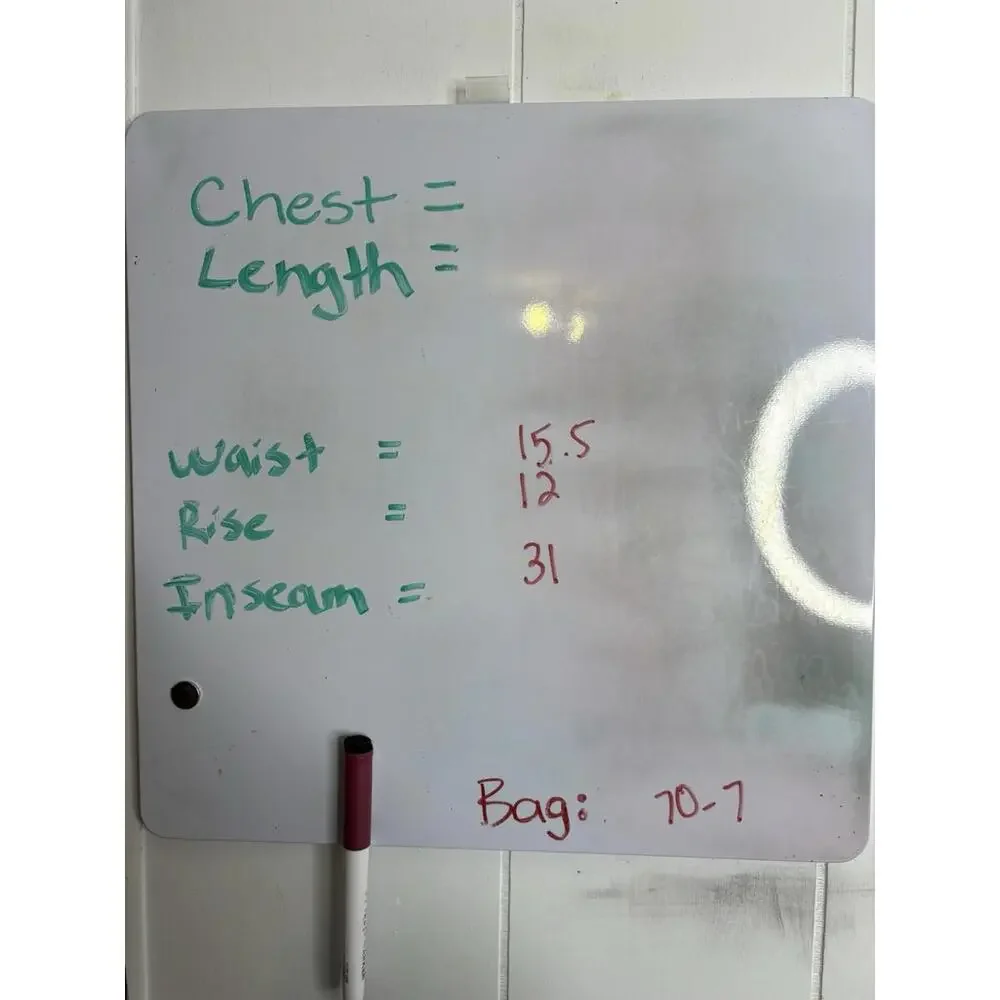 Chest =
Length =
Waist = 15.5
Rise = 12
Inseam = 31
Bag: 70-7